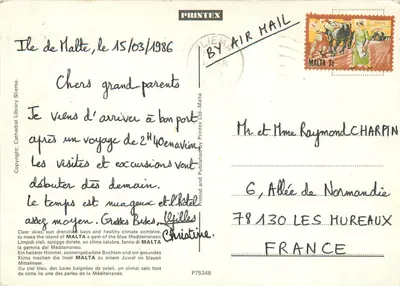 PRINTEX
Ile de Malte, le 15/03/1986
BY AIR MAIL
MALTA 7c
Chers grand-parents
Je viens d'arriver à bon port
après un voyage de 2H40 en avion.
Les visites et excursions vont
débuter dès demain.
Le temps est nuageux et l'hôtel
assez moyen. Grosses Bises,
Christine.
Mr et Mme Raymond CHARPIN
6, Allée de Normandie
78130 LES MUREAUX
FRANCE
Copyright: Cathedral Library Sliema.
Printed and Published by Printex Ltd. Malta
Clear skies, sun drenched bays and healthy climate combine
to make the island of MALTA a gem of the blue Mediterranean
Limpidi cieli, spiagge dorate, un clima salubre, fanno di MALTA
la gemma del Mediterraneo.
Ein heiterer Himmel, sonnengebadete Buchten und ein gesundes
Klima machen die Insel MALTA zu einem Juwel im blauen
Mittelmeer.
Du ciel bleu, des baies baignées de soleil, un climat sain font
de cette île une des perles de la Méditerranée.
P75348